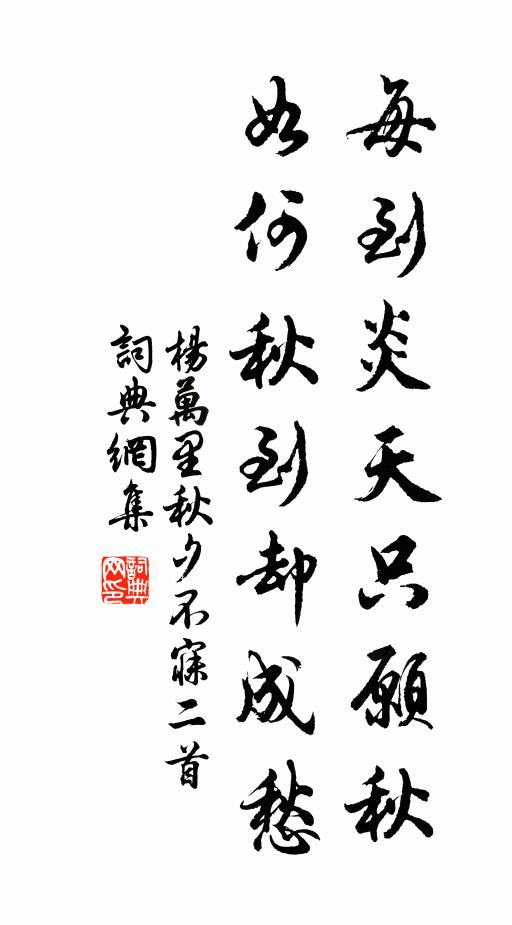 每到炎天只願秋
如何秋到却成愁
楊萬里秋夕不寐二首
詞典網集
詞典网印